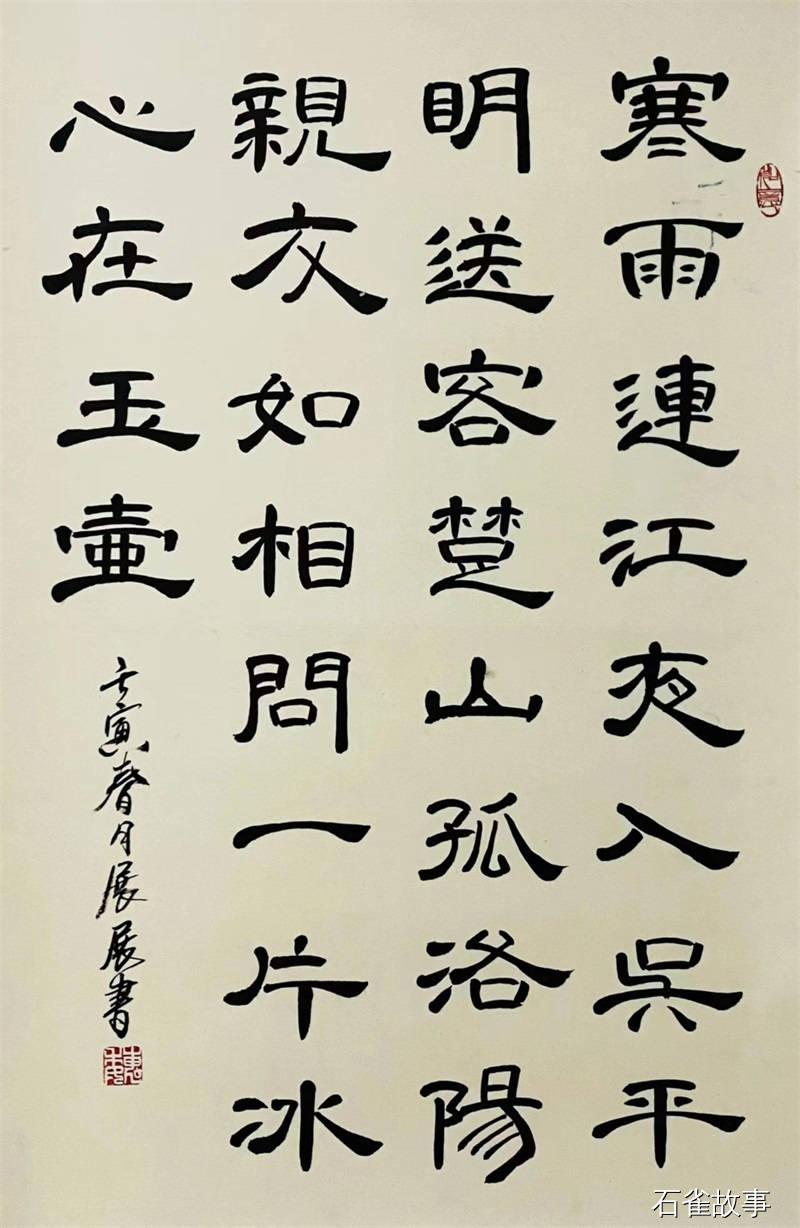 寒雨連江夜入吳平
明送客楚山孤洛陽
親友如相問一片冰
心在玉壺
壬寅春月展展書
石雀故事